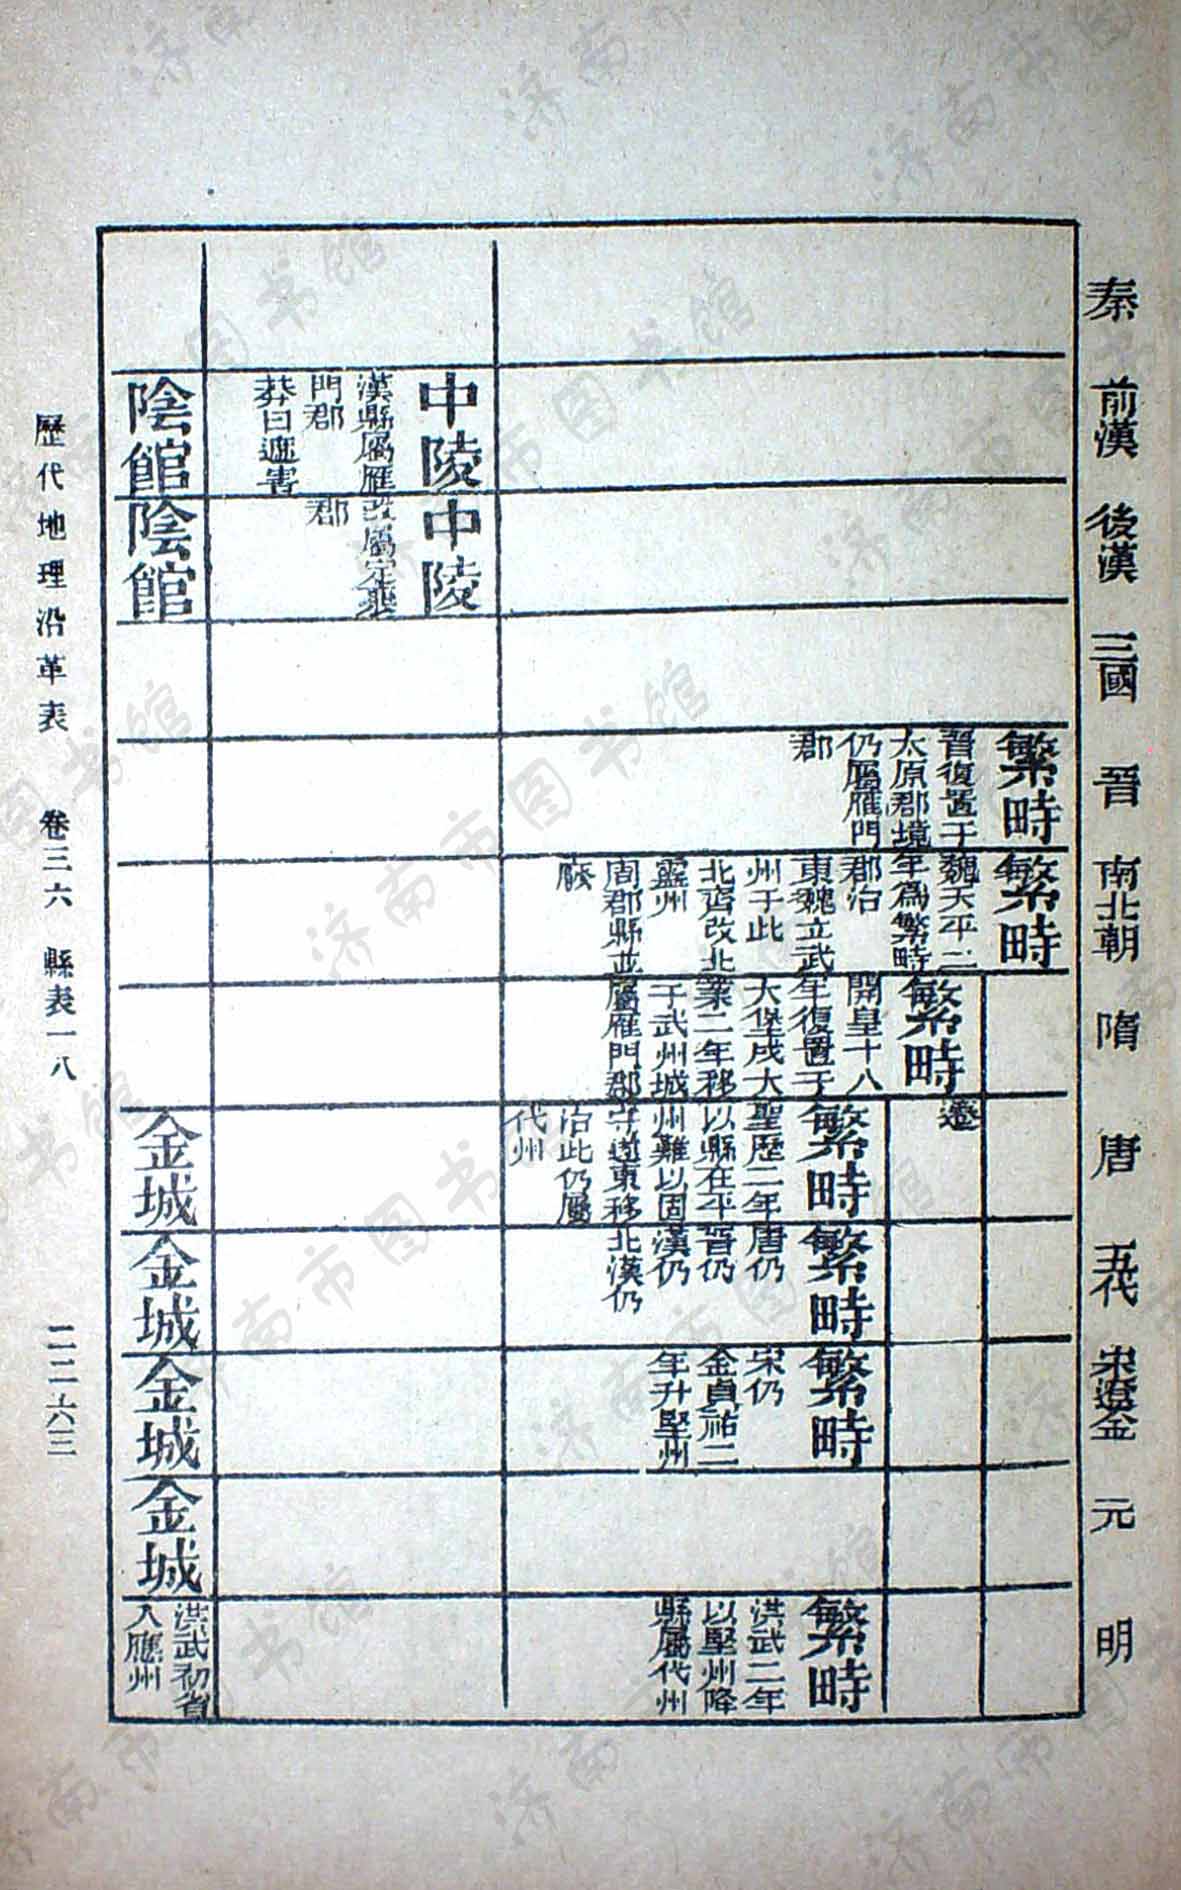 秦 前漢 後漢 三國 晉 南北朝 隋 唐 五代 宋遼金 元 明
繁畤
晉復置于
太原郡境
仍屬雁門
郡
繁畤
魏天平二
年爲繁畤
郡治
東魏立武
州于此
北齊改北
靈州
周郡縣並
廢
繁畤
開皇十八
年復置于
大堡戍大
業二年移
于武州城
屬雁門郡
遷
繁畤
聖歷二年
以縣在平
州難以固
守遂東移
治此仍屬
代州
繁畤
唐仍
晉仍
漢仍
北漢仍
繁畤
宋仍
金貞祐二
年升堅州
繁畤
洪武二年
以堅州降
縣屬代州
中陵
漢縣屬雁
門郡
莽曰遮害
中陵
改屬定襄
郡
陰館
陰館
金城
金城
金城
金城
洪武初省
入應州
歷代地理沿革表 卷三六 縣表一八
二二六三
济南市图书馆